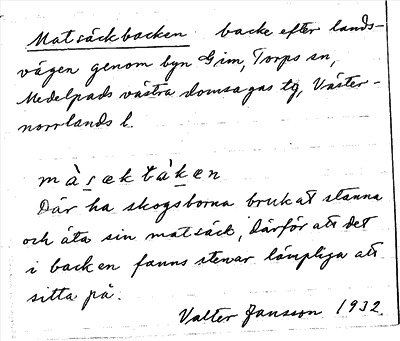 Matsäckbacken backe efter lands-
vägen genom byn Gim, Torps sn,
Medelpads västra domsagas tg, Väster-
norrlands l.
màsækbàken
Där ha skogsborna brukat stanna
och äta sin matsäck, därför att det
i backen fanns stenar lämpliga att
sitta på.
Valter Jansson 1932